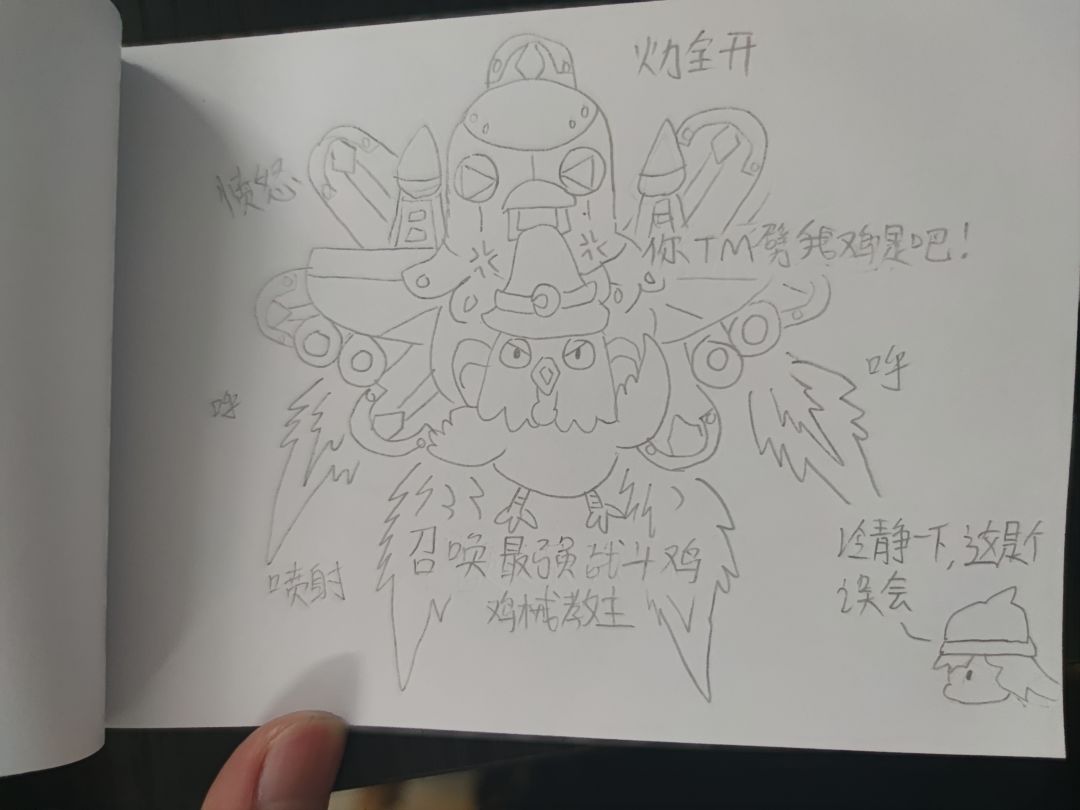 火力全开
愤怒
你TM劈我鸡是吧！
呼
呼
冷静一下，这是个
误会
召唤最强战斗鸡
鸡械教主
喷射